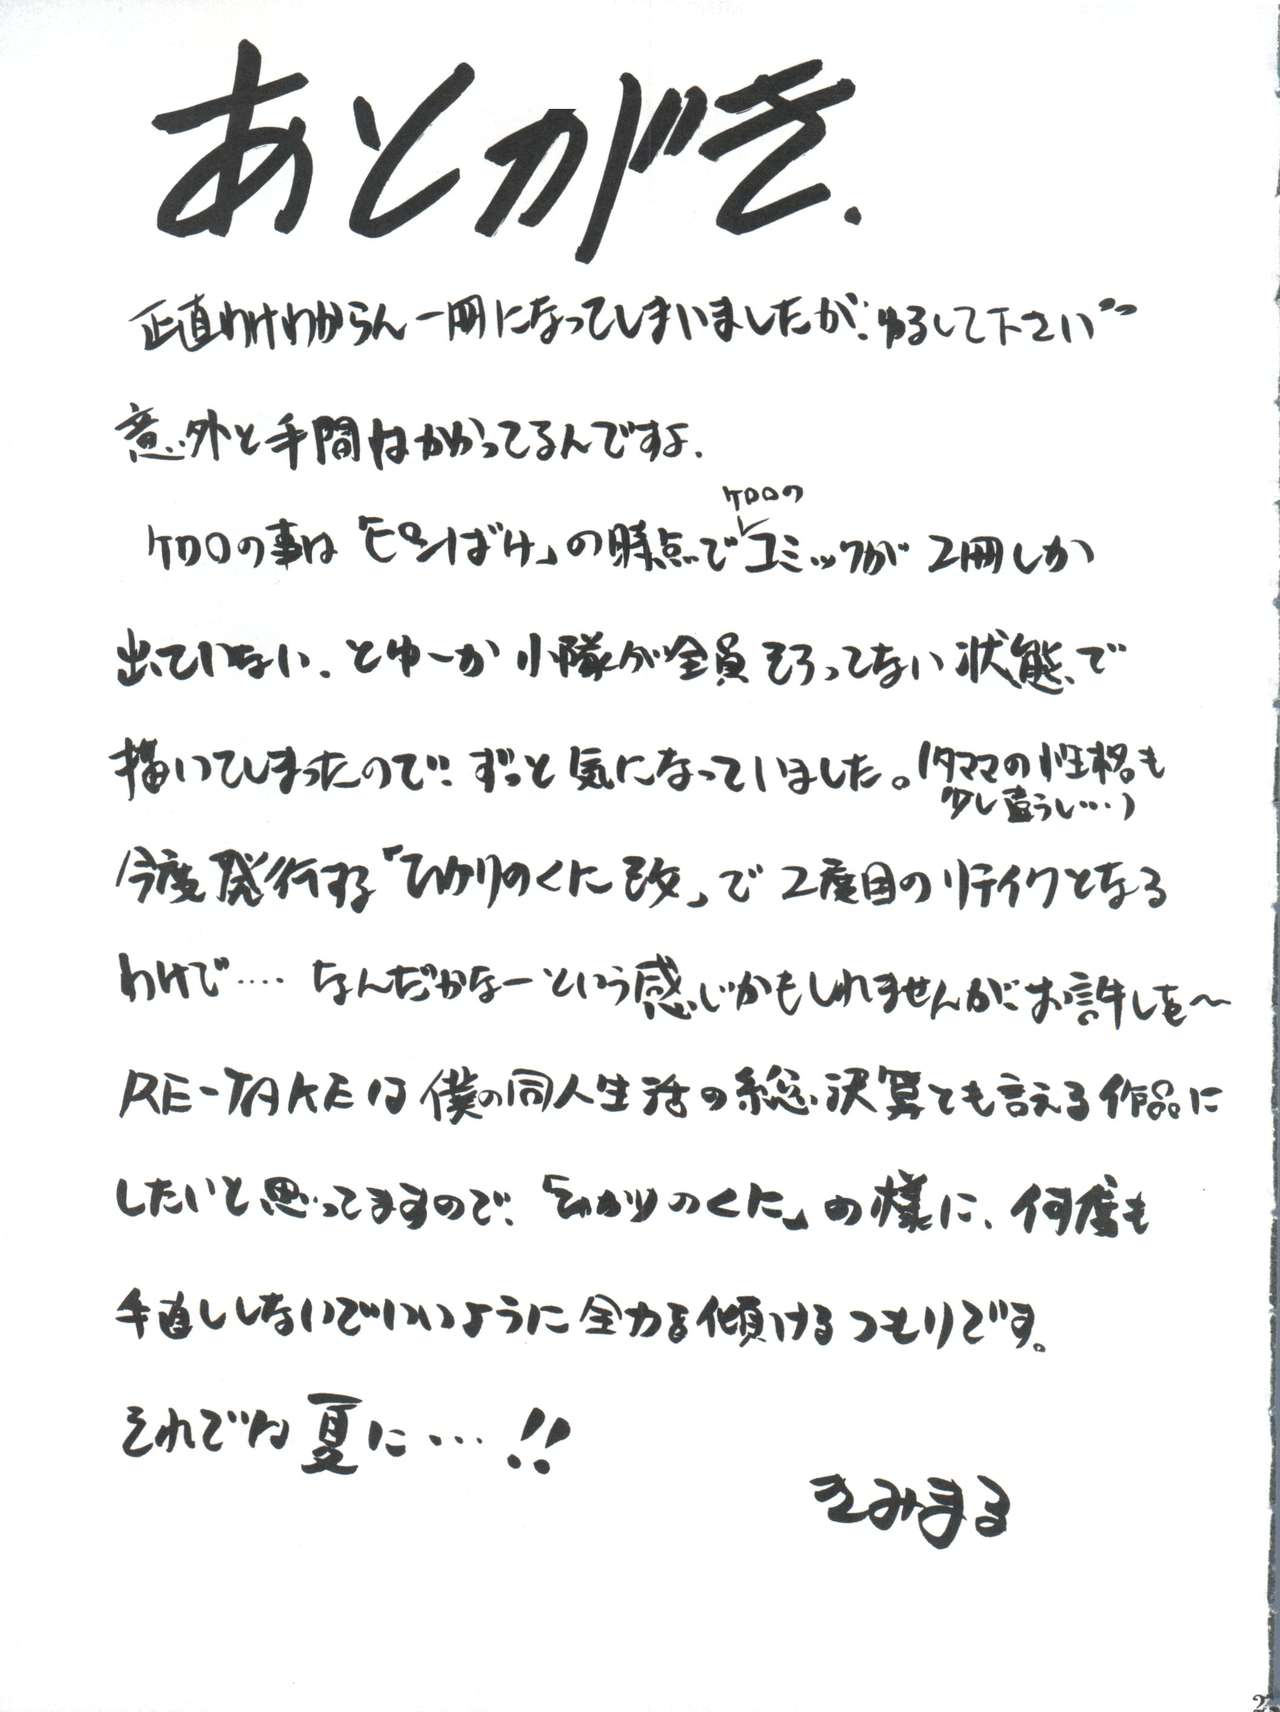 あとがき.
正直わけわからん一冊になってしまいましたが、ゆるして下さい〃
意外と手間はかかってるんですよ.
ケロロの
ケロロの事は「ピンばけ」の時点でコミックが2冊しか
出ていない、とゆーか小隊が全員そろってない状態で
描いてしまったので、ずっと気になっていました。(タママの性格も
少し違うし…)
今度発行する「ひかりのくに改」で2度目のリテイクとなる
わけで‥‥なんだかなーという感じかもしれませんが、お許しを〜
RE-TAKEは僕の同人生活の総決算とも言える作品に
したいと思ってますので、「ひかりのくに」の様に、何度も
手直ししないでいいように全力を傾けるつもりです。
それでは夏に…!!
きみまる